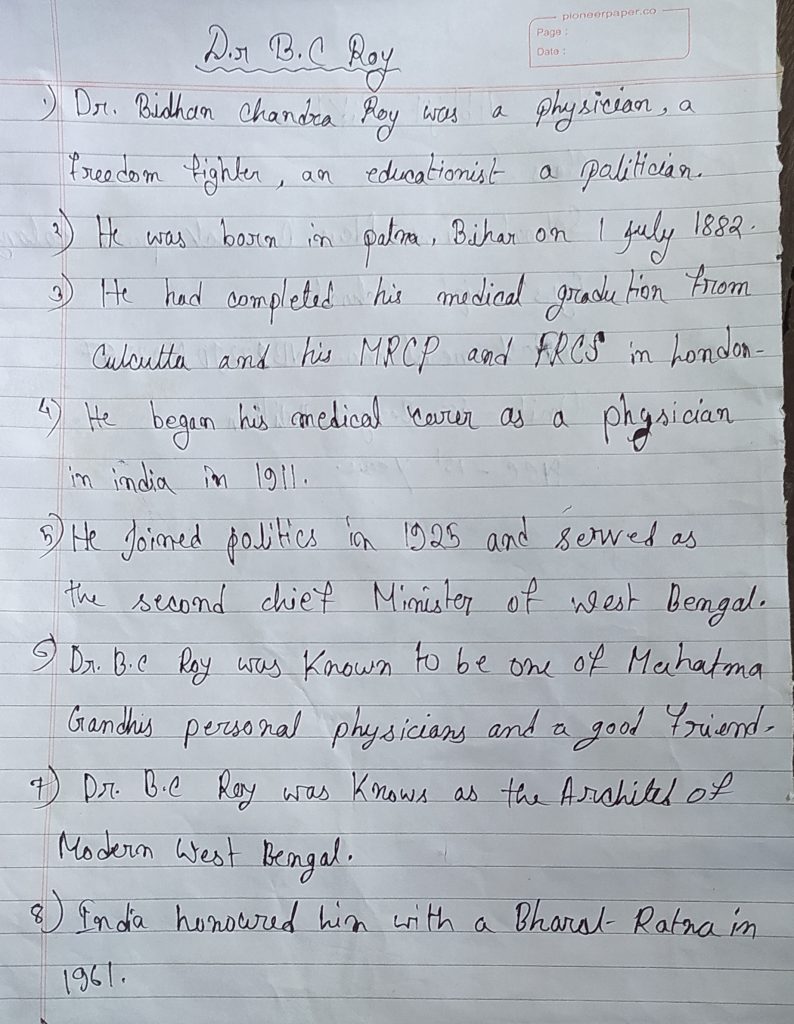 pioneerpaper.co
Page :
Date :
Dr B.C Roy
1) Dr. Bidhan Chandra Roy was a physician, a
freedom fighter, an educationist a politician.
2) He was born in patna, Bihar on 1 july 1882.
3) He had completed his medical gradution from
Culcutta and his MRCP and FRCS in London-
4) He began his medical carer as a physician
in india in 1911.
5) He Joined politics in 1925 and served as
the second chief Minister of west Bengal.
6) Dr. B.C Roy was Known to be one of Mahatma
Gandhis personal physicians and a good friend.
7) Dr. B.C Roy was Knows as the Architect of
Modern West Bengal.
8) India honoured him with a Bharat Ratna in
1961.